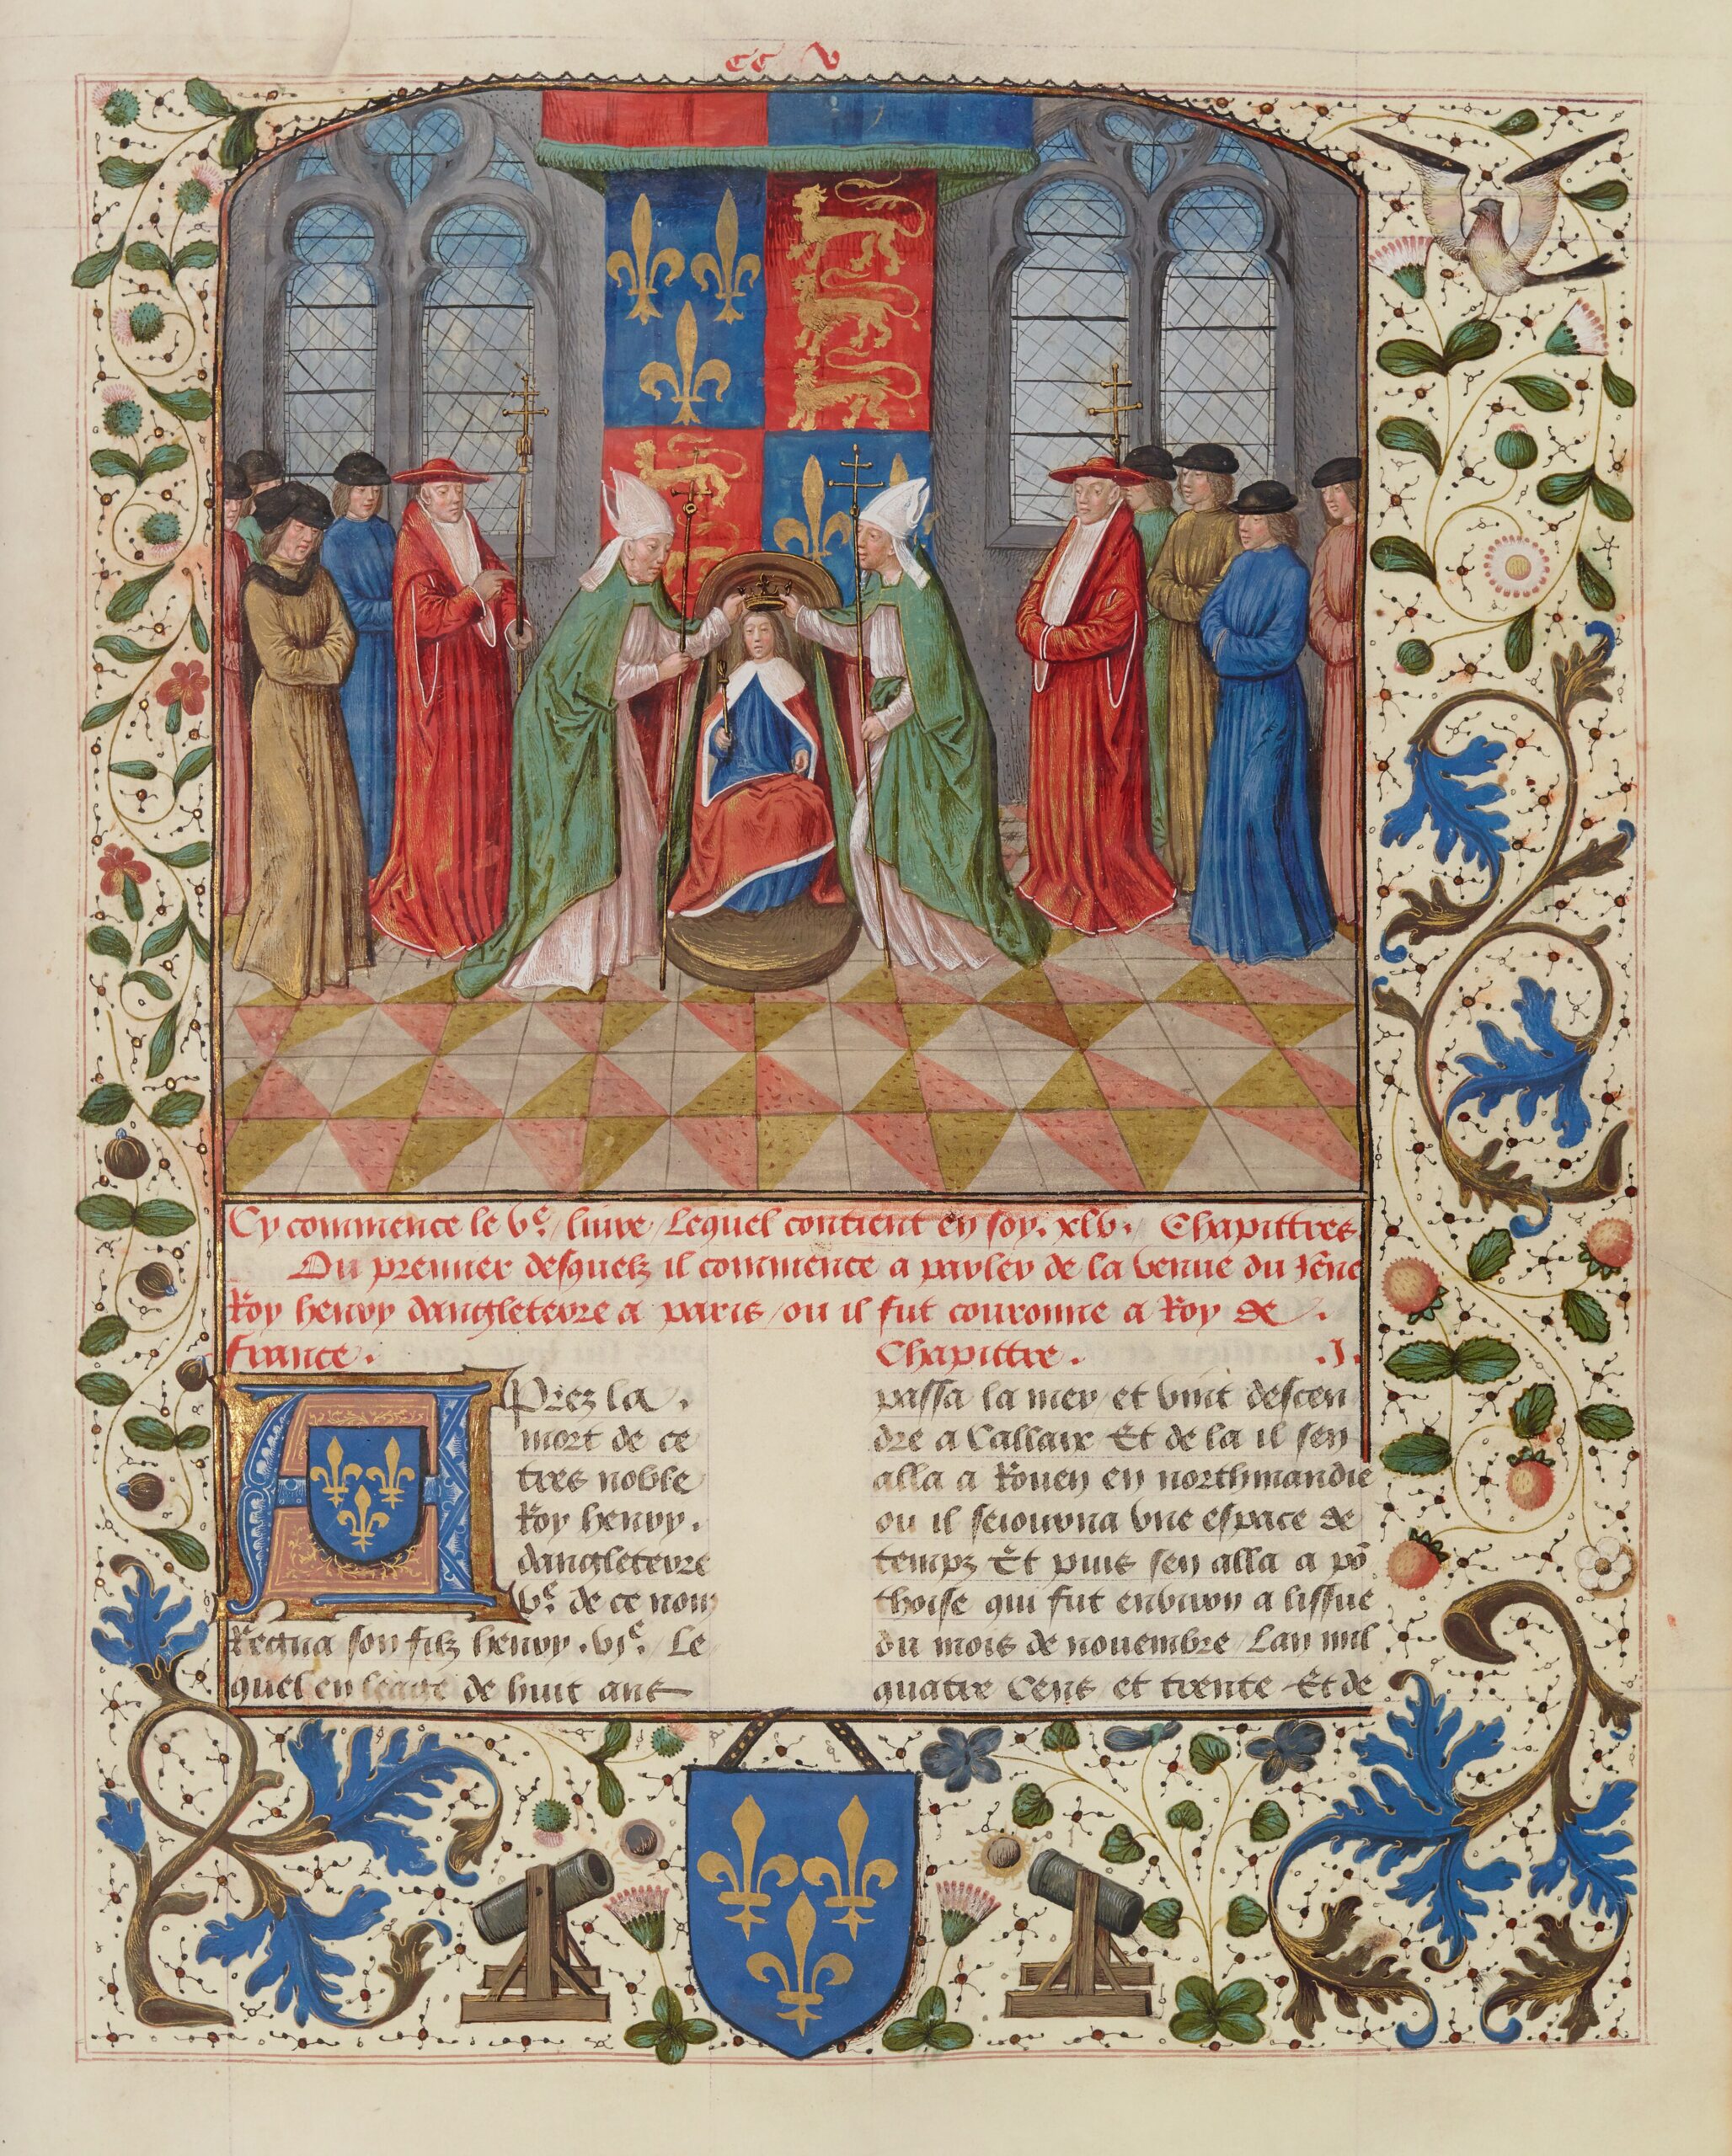 cc v
Cy commence le ve. liure lequel contient en soy. xlv. Chapittres
Du premier desquelz il commence a parler de la venue du Jene
Roy henry dangleterre a paris ou il fut couronne a Roy de .
france.
Chapittre. .I.
APrez la .
mort de ce
tres noble
Roy henry.
dangleterre
ve. de ce nom
Regna son filz henry .vie. Le
quel en leage de huit ans
passa la mer et vint descen
dre a Callaix Et de la il sen
alla a Rouen en northmandie
ou il seiourna vne espace de
temps Et puis sen alla a põ
thoise qui fut enuiron a lissue
du mois de nouembre Lan mil
quatre Cens et trente Et de